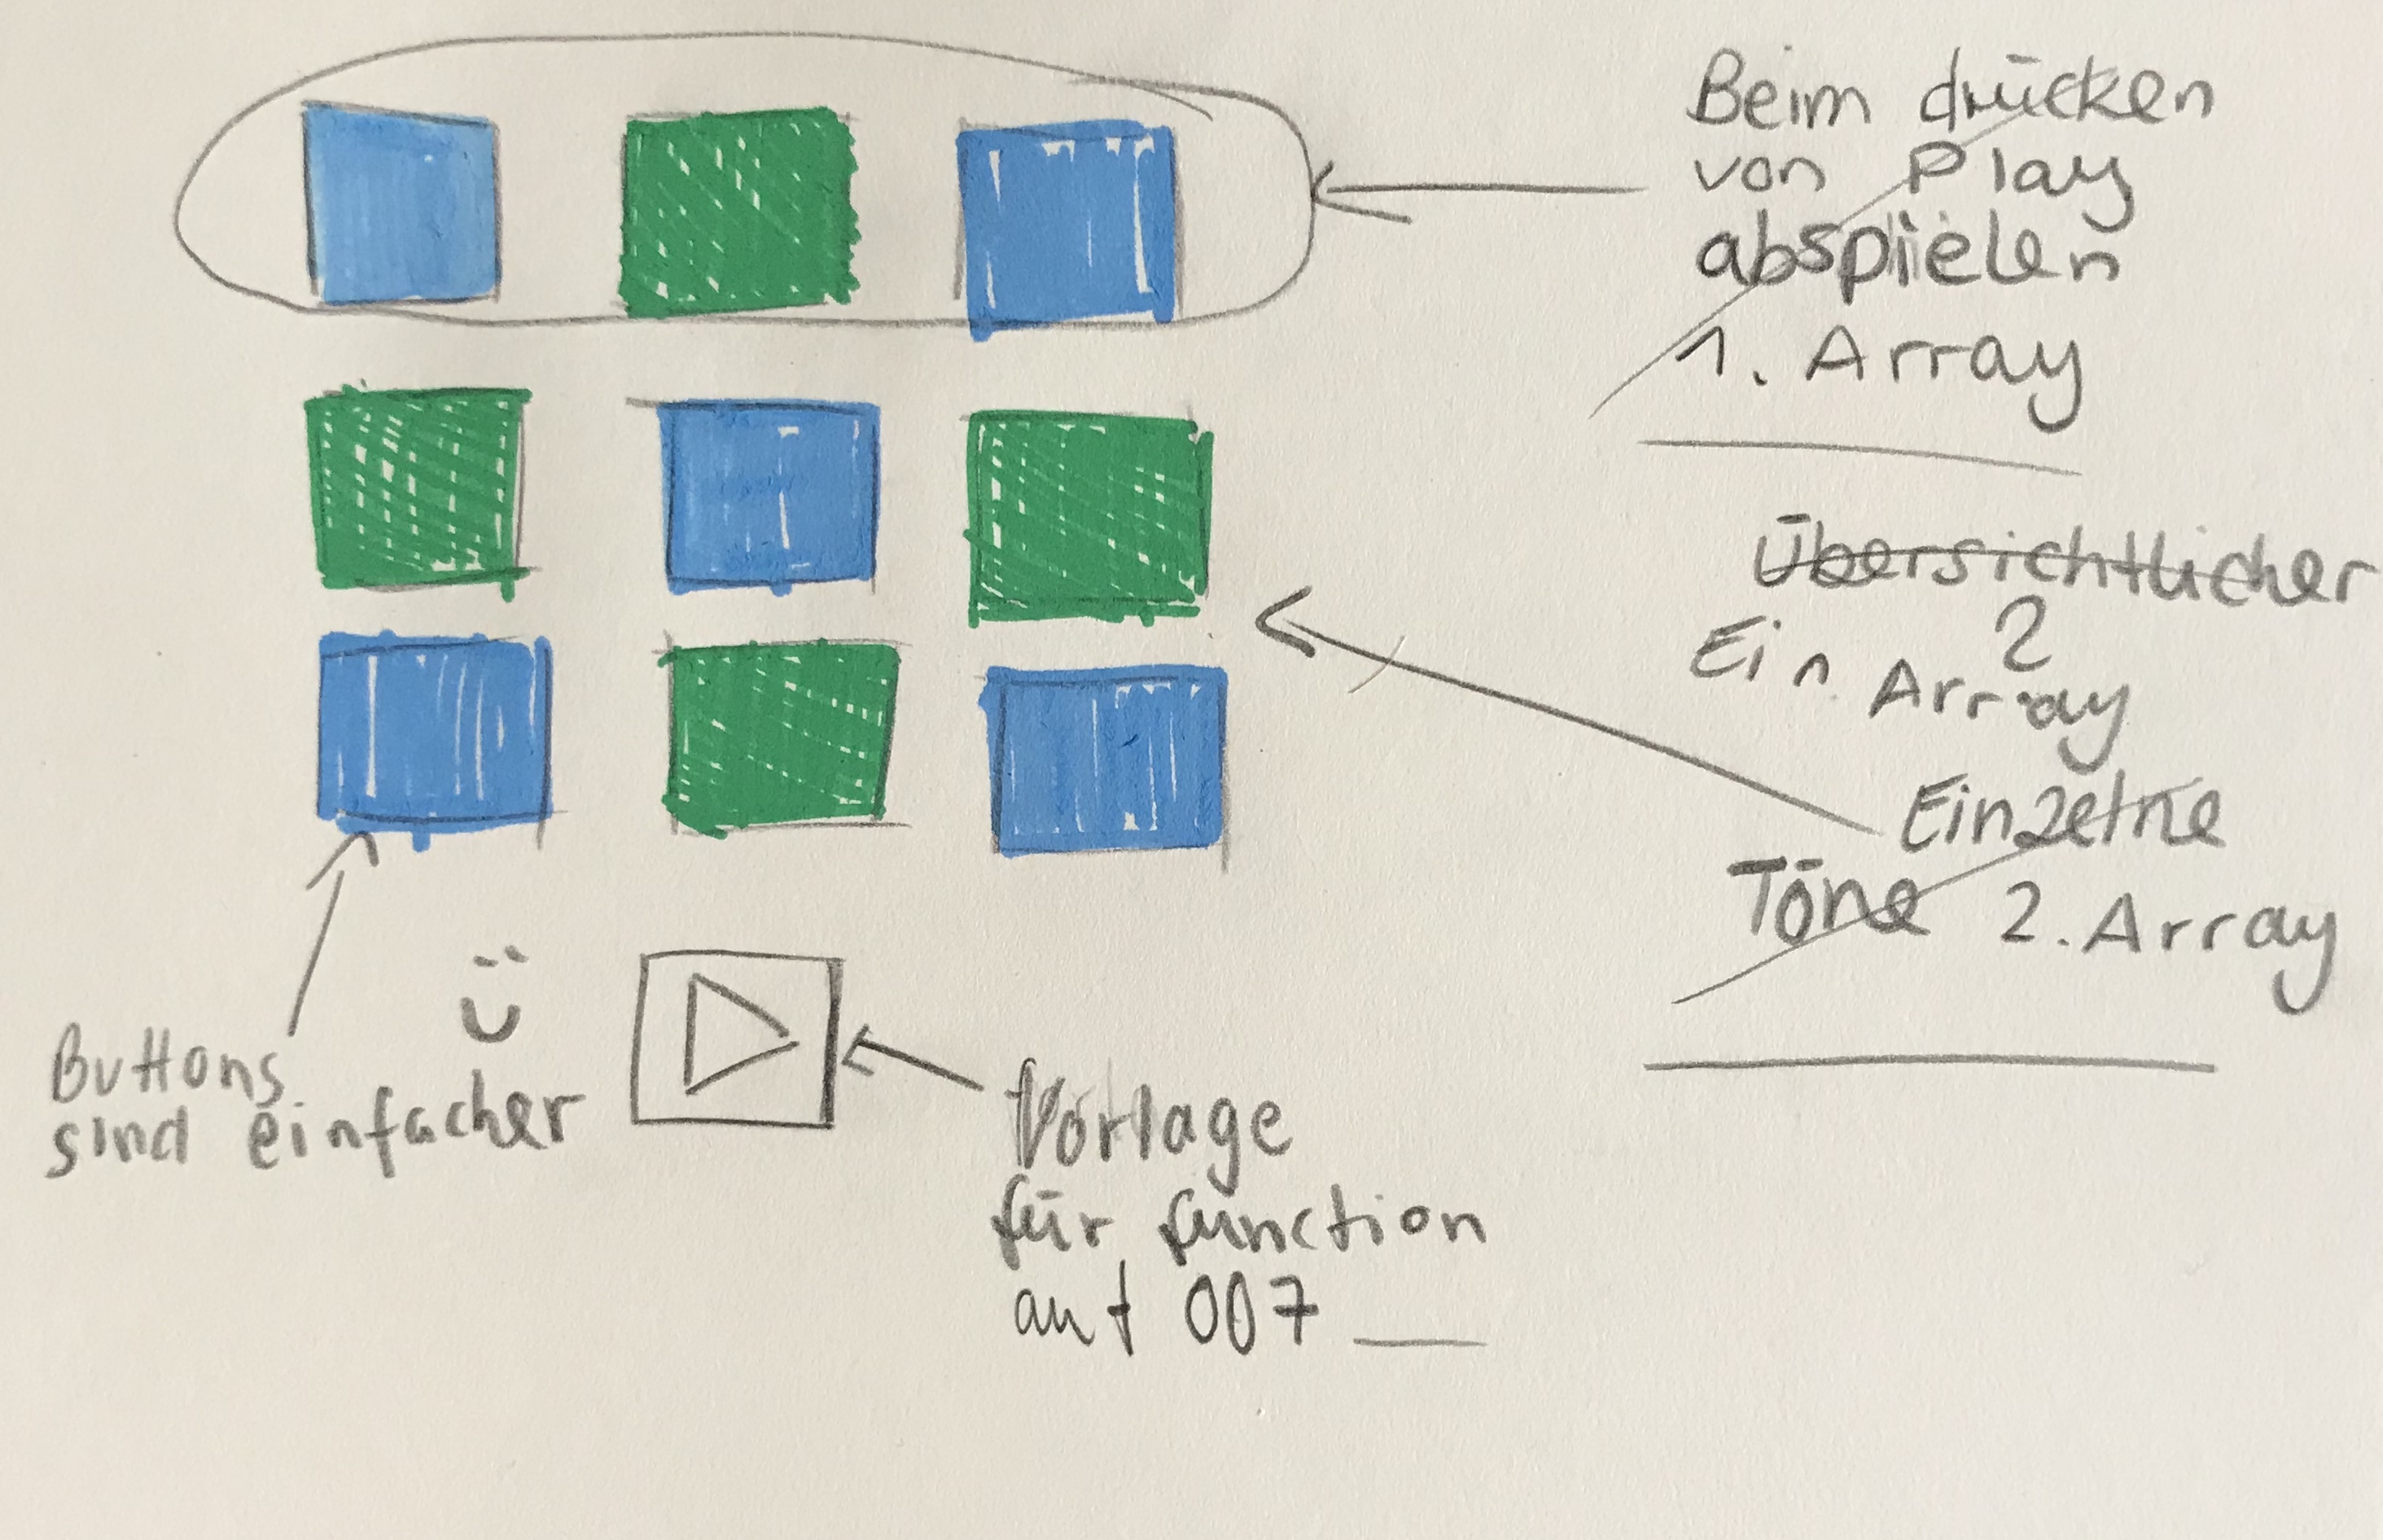 Beim drücken
von Play
abspielen
1. Array
Übersichtlicher
Ein 2
Array
Einzelne
Töne 2. Array
Buttons
sind einfacher
Vorlage
für function
auf 007